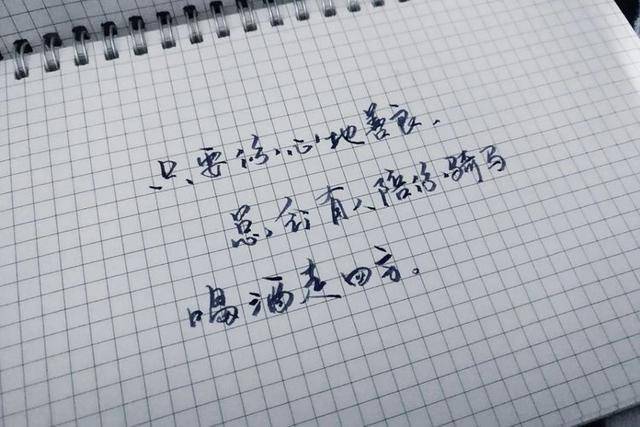 只要你心地善良.
总会有人陪你骑马
喝酒走四方。